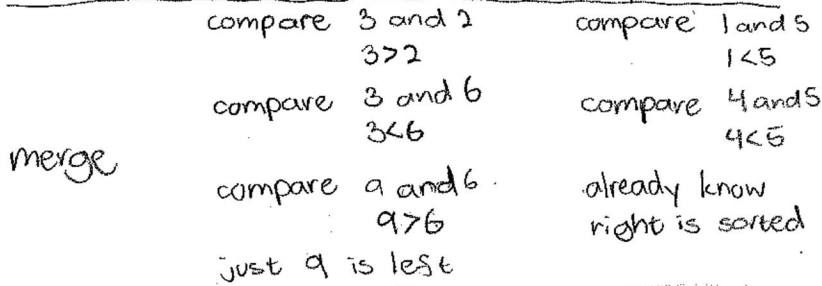 compare 3 and 2
3>2
compare 3 and 6
3<6
compare 9 and 6.
9>6
just 9 is left
merge
compare 1 and 5
1<5
compare 4 and 5
4<5
already know
right is sorted